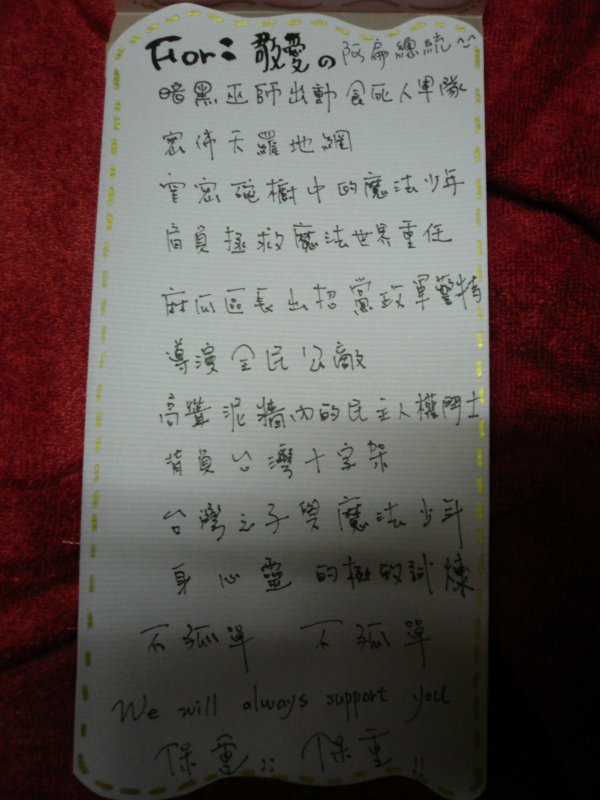 For: 敬愛の阿扁總統^^
暗黑巫師出動食死人軍隊
密佈天羅地網
窄密碗櫥中的魔法少年
肩負拯救魔法世界重任
麻瓜區長出招黨政軍警特
導演全民公敵
高聳泥牆內的民主人權鬥士
背負台灣十字架
台灣之子與魔法少年
身心靈的極致試煉
不孤單 不孤單
We will always support you
保重!! 保重!!